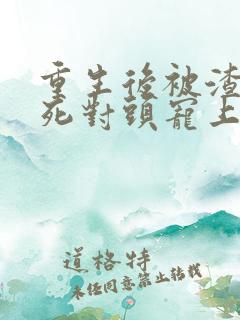 重生後被渣
死對頭寵上
道格特
未经同意禁止转载